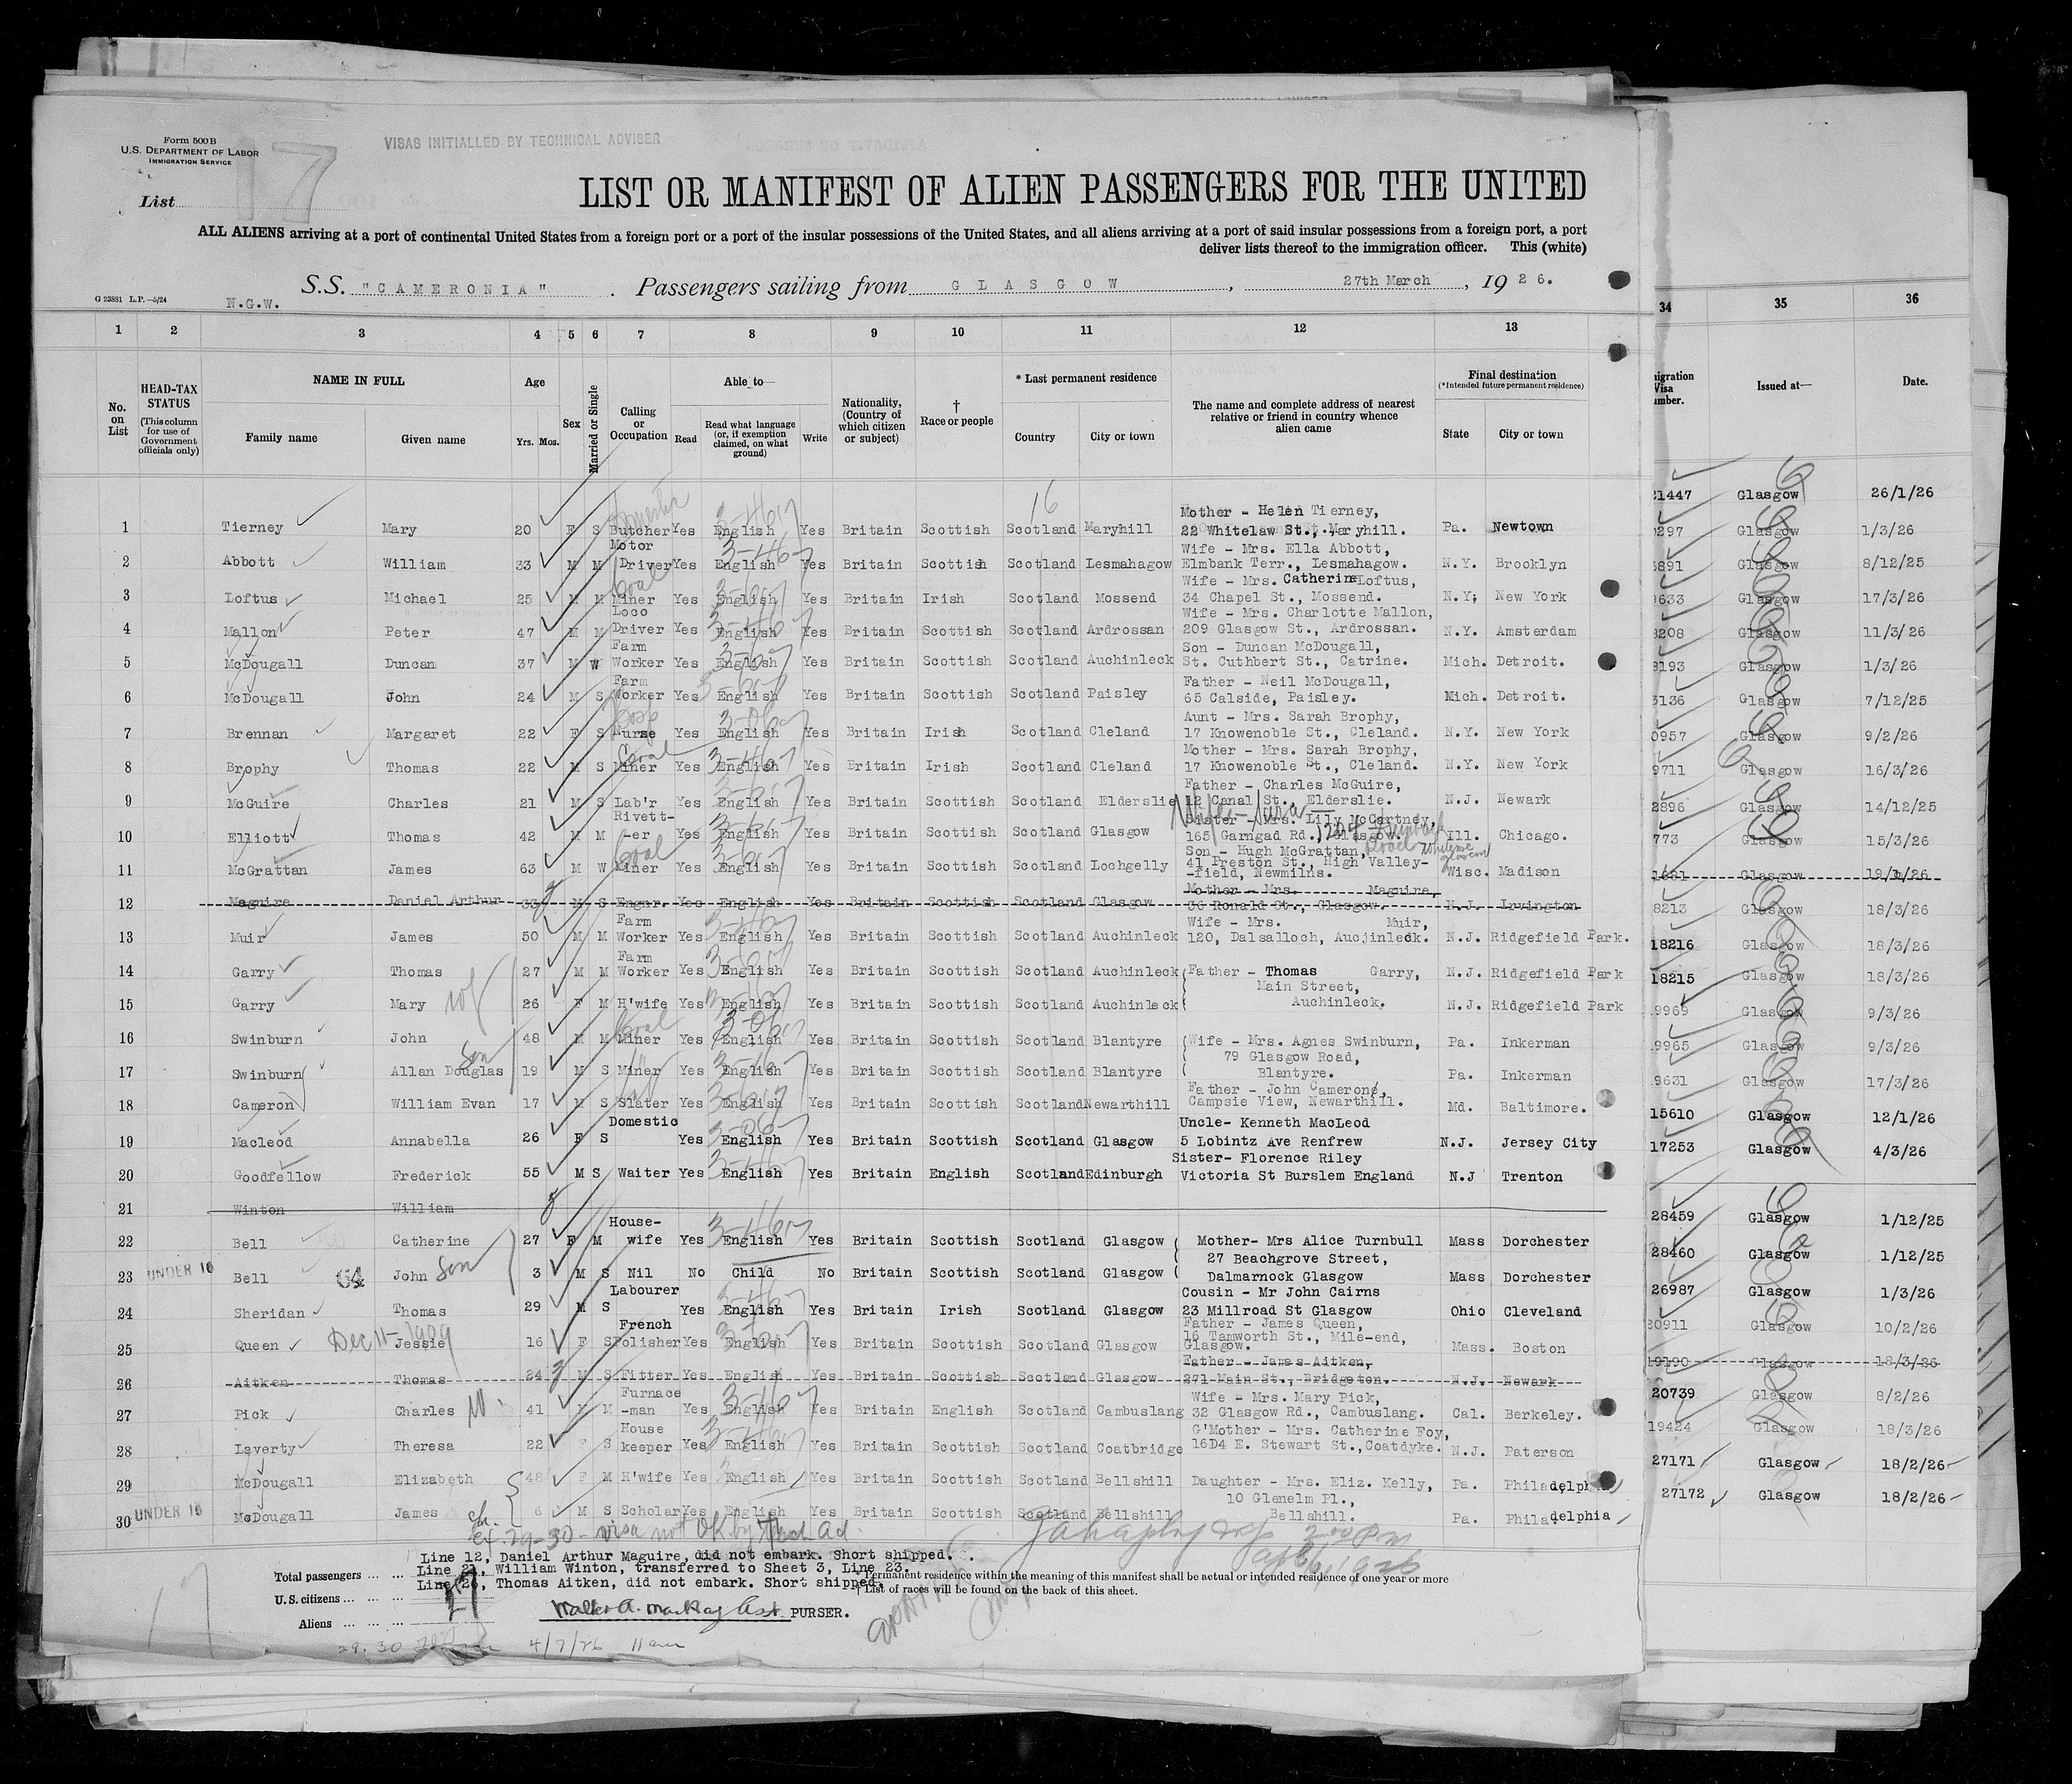 Form 500 B
U.S. DEPARTMENT OF LABOR
IMMIGRATION SERVICE
17
VISAS INITIALLED BY TECHNICAL ADVISER
List
LIST OR MANIFEST OF ALIEN PASSENGERS FOR THE UNITED
ALL ALIENS arriving at a port of continental United States from a foreign port or a port of the insular possessions of the United States, and all aliens arriving at a port of said insular possessions from a foreign port, a port
deliver lists thereof to the immigration officer. This (white)
S.S. "CAMERONIA". Passengers sailing from GLASGOW, 27th March, 1926.
G 23881 L.P.—5/24 N.G.W.
1 2 3 4 5 6 7 8 9 10 11 12 13 34 35 36
No. on List
HEAD-TAX STATUS (This column for use of Government officials only)
NAME IN FULL Family name Given name
Age Yrs. Mos.
Sex
Married or Single
Calling or Occupation
Able to— Read Read what language (or, if exemption claimed, on what ground) Write
Nationality, (Country of which citizen or subject)
† Race or people
* Last permanent residence Country City or town
The name and complete address of nearest relative or friend in country whence alien came
Final destination (*Intended future permanent residence) State City or town
Issued at— Date.
1 Tierney Mary 20 F S Butcher Yes English Yes Britain Scottish Scotland Maryhill Mother - Helen Tierney, 22 Whitelaw St., Maryhill. Pa. Newtown
2 Abbott William 33 M M Motor Driver Yes English Yes Britain Scottish Scotland Lesmahagow Wife - Mrs. Ella Abbott, Elmbank Terr., Lesmahagow. N.Y. Brooklyn
3 Loftus Michael 25 M M Coal Miner Yes English Yes Britain Irish Scotland Mossend Wife - Mrs. Catherine Loftus, 34 Chapel St., Mossend. N.Y; New York
4 Mallon Peter 47 M M Loco Driver Yes English Yes Britain Scottish Scotland Ardrossan Wife - Mrs. Charlotte Mallon, 209 Glasgow St., Ardrossan. N.Y. Amsterdam
5 McDougall Duncan 37 M W Farm Worker Yes English Yes Britain Scottish Scotland Auchinleck Son - Duncan McDougall, St. Cuthbert St., Catrine. Mich. Detroit.
6 McDougall John 24 M S Farm Worker Yes English Yes Britain Scottish Scotland Paisley Father - Neil McDougall, 65 Calside, Paisley. Mich. Detroit.
7 Brennan Margaret 22 F S Nurse Yes English Yes Britain Irish Scotland Cleland Aunt - Mrs. Sarah Brophy, 17 Knowenoble St., Cleland. N.Y. New York
8 Brophy Thomas 22 M S Coal Miner Yes English Yes Britain Irish Scotland Cleland Mother - Mrs. Sarah Brophy, 17 Knowenoble St., Cleland. N.Y. New York
9 McGuire Charles 21 M S Lab'r Yes English Yes Britain Scottish Scotland Elderslie Father - Charles McGuire, 12 Canal St., Elderslie. N.J. Newark
10 Elliott Thomas 42 M M Rivett--er Yes English Yes Britain Scottish Scotland Glasgow Sister - Mrs. Lily McCartney, 165 Garngad Rd., Glasgow. Ill. Chicago.
11 McGrattan James 63 M W Coal Miner Yes English Yes Britain Scottish Scotland Lochgelly Son - Hugh McGrattan, 41 Preston St., High Valley--field, Newmilns. Wisc. Madison
12 Maguire Daniel Arthur 33 M S Engnr. Yes English Yes Britain Scottish Scotland Glasgow Mother - Mrs. Maguire, 36 Ronald St., Glasgow. N.J. Irvington
13 Muir James 50 M M Farm Worker Yes English Yes Britain Scottish Scotland Auchinleck Wife - Mrs. Muir, 120, Dalsalloch, Aucjinleck. N.J. Ridgefield Park.
14 Garry Thomas 27 M M Farm Worker Yes English Yes Britain Scottish Scotland Auchinleck Father - Thomas Garry, N.J. Ridgefield Park
15 Garry Mary wf 26 F M H'wife Yes English Yes Britain Scottish Scotland Auchinleck Main Street, Auchinleck. N.J. Ridgefield Park
16 Swinburn John 48 M M Coal Miner Yes English Yes Britain Scottish Scotland Blantyre Wife - Mrs. Agnes Swinburn, 79 Glasgow Road, Pa. Inkerman
17 Swinburn Allan Douglas Son 19 M S Miner Yes English Yes Britain Scottish Scotland Blantyre Blantyre. Pa. Inkerman
18 Cameron William Evan 17 M S Slater Yes English Yes Britain Scottish Scotland Newarthill Father - John Cameron, Campsie View, Newarthill. Md. Baltimore.
19 Macleod Annabella 26 F S Domestic Yes English Yes Britain Scottish Scotland Glasgow Uncle- Kenneth MacLeod 5 Lobintz Ave Renfrew N.J. Jersey City
20 Goodfellow Frederick 55 M S Waiter Yes English Yes Britain English Scotland Edinburgh Sister- Florence Riley Victoria St Burslem England N.J Trenton
21 Winton William
22 Bell Catherine 27 F M House-wife Yes English Yes Britain Scottish Scotland Glasgow Mother- Mrs Alice Turnbull 27 Beachgrove Street, Mass Dorchester
23 UNDER 16 Bell John Son 3 M S Nil No Child No Britain Scottish Scotland Glasgow Dalmarnock Glasgow Mass Dorchester
24 Sheridan Thomas 29 M S Labourer Yes English Yes Britain Irish Scotland Glasgow Cousin - Mr John Cairns 23 Millroad St Glasgow Ohio Cleveland
25 Queen Dec 11-1909 Jessie 16 F S French Polisher Yes English Yes Britain Scottish Scotland Glasgow Father - James Queen, 16 Tamworth St., Mile-end, Glasgow. Mass. Boston
26 Aitken Thomas 24 M S Fitter Yes English Yes Britain Scottish Scotland Glasgow Father - James Aitken, 271 Main St., Bridgeton. N.J. Newark
27 Pick Charles 41 M M Furnace -man Yes English Yes Britain English Scotland Cambuslang Wife - Mrs. Mary Pick, 32 Glasgow Rd., Cambuslang. Cal. Berkeley.
28 Laverty Theresa 22 F S House keeper Yes English Yes Britain Scottish Scotland Coatbridge G'Mother - Mrs. Catherine Foy, 16D4 E. Stewart St., Coatdyke. N.J. Paterson
29 McDougall Elizabeth 48 F M H'wife Yes English Yes Britain Scottish Scotland Bellshill Daughter - Mrs. Eliz. Kelly, 10 Glenelm Pl., Pa. Philadelphia
30 UNDER 16 McDougall James ch. 6 M S Scholar Yes English Yes Britain Scottish Scotland Bellshill Bellshill. Pa. Philadelphia
21447 Glasgow 26/1/26
Glasgow 1/3/26
Glasgow 8/12/25
Glasgow 17/3/26
Glasgow 11/3/26
Glasgow 1/3/26
Glasgow 7/12/25
Glasgow 9/2/26
Glasgow 16/3/26
Glasgow 14/12/25
Glasgow 15/3/26
Glasgow 19/1/26
8213 Glasgow 18/3/26
18216 Glasgow 18/3/26
18215 Glasgow 18/3/26
9969 Glasgow 9/3/26
9965 Glasgow 9/3/26
9631 Glasgow 17/3/26
15610 Glasgow 12/1/26
17253 Glasgow 4/3/26
28459 Glasgow 1/12/25
28460 Glasgow 1/12/25
26987 Glasgow 1/3/26
20911 Glasgow 10/2/26
19190 Glasgow 18/3/26
20739 Glasgow 8/2/26
19424 Glasgow 18/3/26
27171 Glasgow 18/2/26
27172 Glasgow 18/2/26
29-30 - visa not OK by Tech Ad.
Line 12, Daniel Arthur Maguire, did not embark. Short shipped.
Line 21, William Winton, transferred to Sheet 3, Line 23.
Line 26, Thomas Aitken, did not embark. Short shipped.
Total passengers
U.S. citizens
Aliens
27
* Permanent residence within the meaning of this manifest shall be actual or intended residence of one year or more
† List of races will be found on the back of this sheet.
Walter A. MacKay Asst PURSER.
29.30 4/7/26 11 am